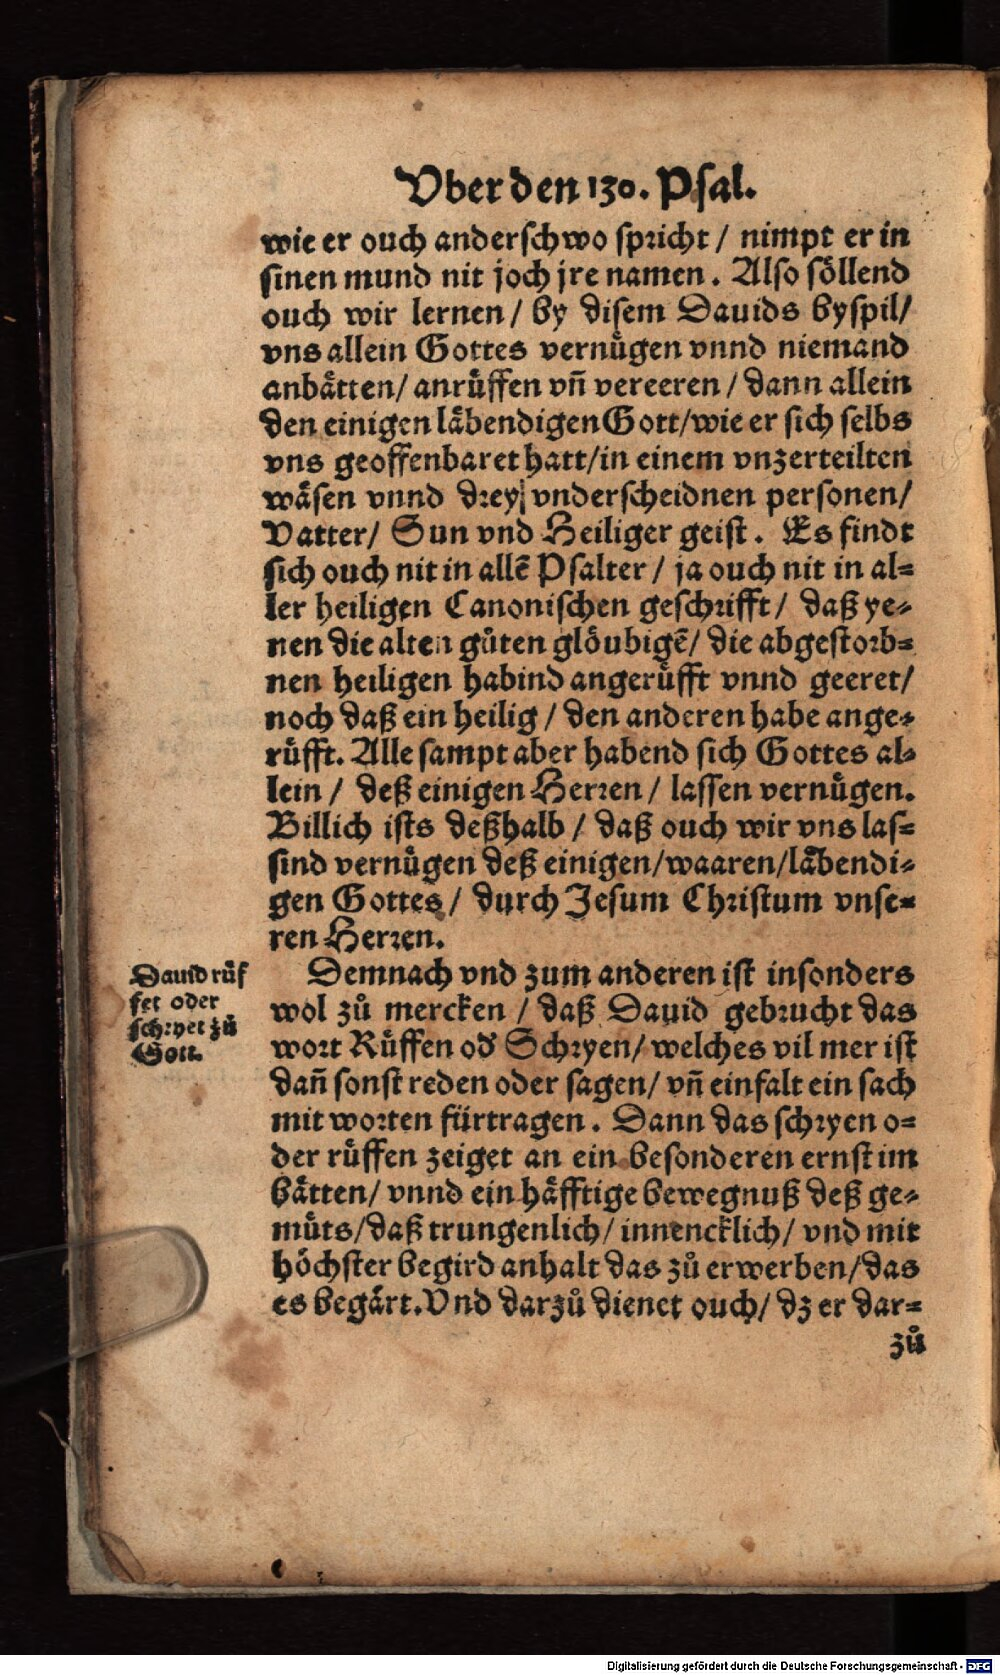 Vber den 130. Psal.
wie er ouch anderschwo spricht / nimpt er in
sinen mund nit joch jre namen. Also söllend
ouch wir lernen / by disem Dauids byspil/
vns allein Gottes vernuͤgen vnnd niemand
anbaͤtten / anruͤffen vn̄ vereeren / dann allein
den einigen laͤbendigen Gott/wie er sich selbs
vns geoffenbaret hatt/in einem vnzerteilten
waͤsen vnnd drey vnderscheidnen personen/
Vatter/ Sun vnd Heiliger geist. Es findt
sich ouch nit in allē Psalter / ja ouch nit in al⸗
ler heiligen Canonischen geschrifft / daß ye⸗
nen die alten guͦten gloͤubigē/ die abgestorb⸗
nen heiligen habind angeruͤfft vnnd geeret/
noch daß ein heilig / den anderen habe ange⸗
ruͤfft. Alle sampt aber habend sich Gottes al⸗
lein / deß einigen Herren / lassen vernuͤgen.
Billich ists deßhalb / daß ouch wir vns las⸗
sind vernuͤgen deß einigen/waaren/laͤbendi⸗
gen Gottes / durch Jesum Christum vnse⸗
ren Herren.
Dauid ruͤf
fet oder
schryet zuͦ
Gott.
Demnach vnd zum anderen ist insonders
wol zuͦ mercken / daß Dauid gebrucht das
wort Ruͤffen od̓ Schryen/ welches vil mer ist
dan̄ sonst reden oder sagen/ vn̄ einfalt ein sach
mit worten fürtragen. Dann das schryen o⸗
der ruͤffen zeiget an ein besonderen ernst im
baͤtten/ vnnd ein haͤfftige bewegnuß deß ge⸗
muͤts/daß trungenlich/ innencklich/ vnd mit
hoͤchster begird anhalt das zuͦ erwerben/das
es begaͤrt. Vnd darzuͦ dienet ouch/ dz er dar⸗
zuͦ
Digitalisierung gefördert durch die Deutsche Forschungsgemeinschaft - DFG